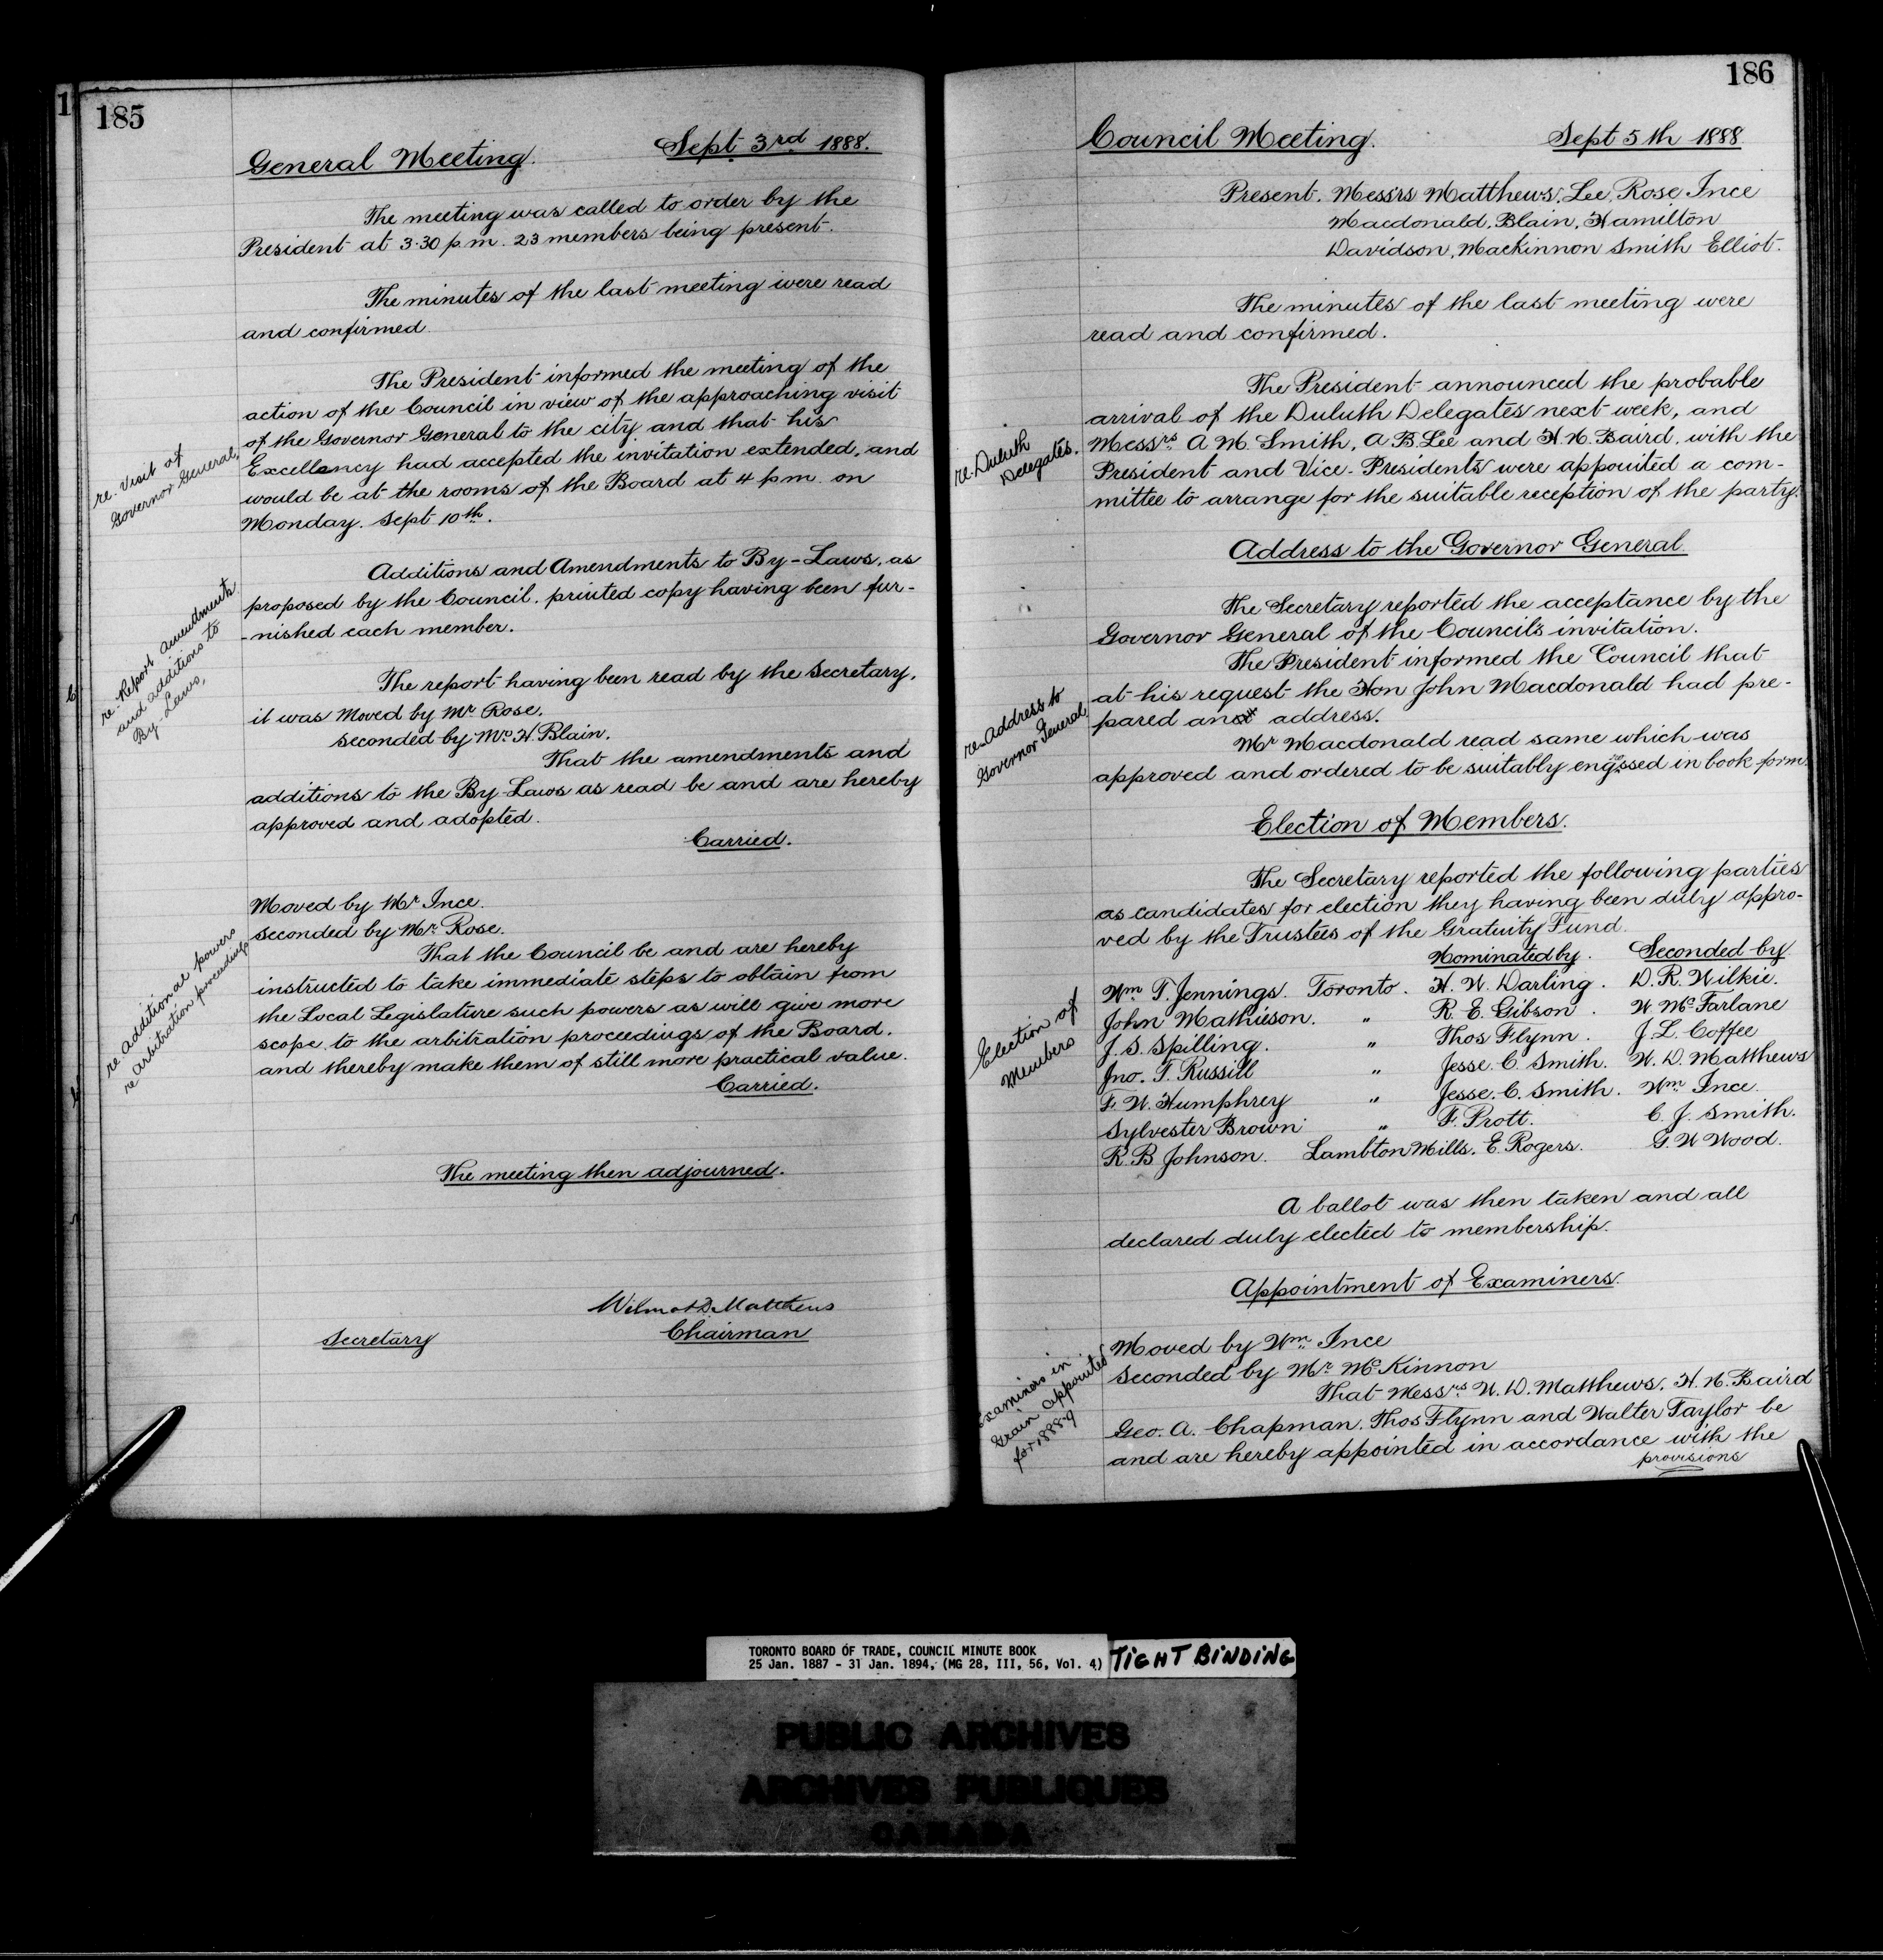 185
General Meeting. Sept 3rd 1888.
The meeting was called to order by the
President at 3.30 p.m. 23 members being present.
The minutes of the last meeting were read
and confirmed
re. Visit of
Governor General,
The President informed the meeting of the
action of the Council in view of the approaching visit
of the Governor General to the city and that his
Excellency had accepted the invitation extended, and
would be at the rooms of the Board at 4 p.m. on
Monday. Sept 10th.
re-Report amendments
and additions to
By-Laws,
Additions and Amendments to By-Laws, as
proposed by the Council. printed copy having been fur-
-nished each member.
The report having been read by the Secretary,
it was Moved by Mr Rose.
Seconded by Mr. H. Blain.
That the amendments and
additions to the By-Laws as read be and are hereby
approved and adopted.
Carried.
re additional powers
re arbitration proceedings
Moved by Mr Ince.
Seconded by Mr. Rose.
That the Council be and are hereby
instructed to take immediate steps to obtain from
the Local Legislature such powers as will give more
scope to the arbitration proceedings of the Board.
and thereby make them of still more practical value.
Carried.
The meeting then adjourned.
Wilmot D. Matthews
Secretary Chairman
186
Council Meeting. Sept 5th 1888
Present. Messrs Matthews, Lee, Rose, Ince
Macdonald, Blain, Hamilton
Davidson, Mackinnon Smith Elliot.
The minutes of the last meeting were
read and confirmed.
re. Duluth
Delegates.
The President announced the probable
arrival of the Duluth Delegates next week, and
Messrs. A M. Smith, A B. Lee and H. N. Baird, with the
President and Vice-Presidents were appointed a com-
mittee to arrange for the suitable reception of the party.
Address to the Governor General
The Secretary reported the acceptance by the
Governor General of the Council's invitation.
re-address to
Governor General
The President informed the Council that
at his request the Hon John Macdonald had pre-
pared an address.
Mr Macdonald read same which was
approved and ordered to be suitably engrossed in book form.
Election of Members.
The Secretary reported the following parties
as candidates for election they having been duly appro-
ved by the Trustees of the Gratuity Fund.
Nominated by. Seconded by
Election of
Members
Wm. T. Jennings. Toronto. H. W. Darling. D. R. Wilkie.
John Mathieson. " R. E. Gibson. W McFarlane
J. S. Spilling. " Thos Flynn. J. L. Coffee
Jno. T. Russill " Jesse. C. Smith. W. D. Matthews
F. W. Humphrey " Jesse. C. Smith. Wm. Ince.
Sylvester Brown " F. Prott. C. J. Smith.
R. B Johnson. Lambton Mills. E. Rogers. G. W Wood.
A ballot was then taken and all
declared duly elected to membership.
Appointment of Examiners.
Examiners in
Grain appointed
for 1888-9
Moved by Wm. Ince
Seconded by Mr. McKinnon
That Messrs. W. D. Matthews, H. N. Baird
Geo. A. Chapman. Thos Flynn and Walter Taylor be
and are hereby appointed in accordance with the
provisions
TORONTO BOARD OF TRADE, COUNCIL MINUTE BOOK
25 Jan. 1887 - 31 Jan. 1894, (MG 28, III, 56, Vol. 4)
TIGHT BINDING
PUBLIC ARCHIVES
ARCHIVES PUBLIQUES
CANADA